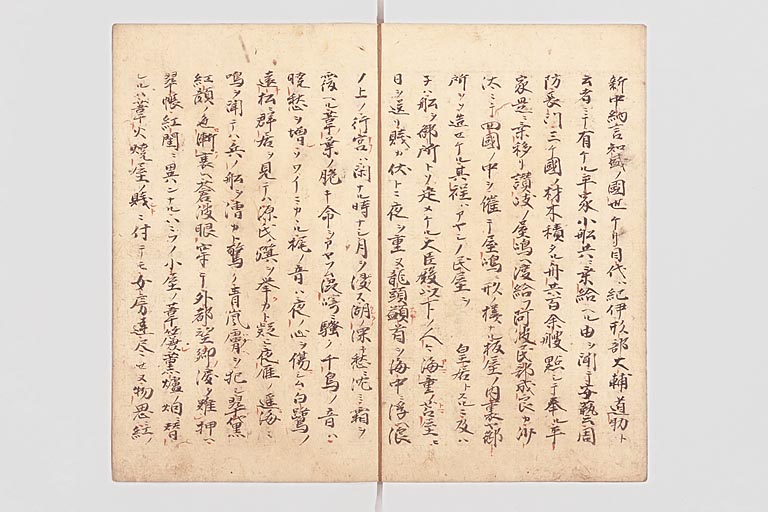 新中納言知盛ノ國也ケリ目代ハ紀伊刑部大輔道助ト
云者ニテ有ケル平家小船共ニ乗給ヘル由ヲ聞テ安藝周
防長門三ケ國ノ材木積タル舟共百余艘點シテ奉ル平
家是ニ乗移リ讃岐ノ屋嶋ヘ渡給フ阿波民部成良カ沙
汰ニテ四國ノ中ヲ催テ屋嶋ニ形ノ様ナル板屋ノ内裏御
所ヲソ造セケル其程ハアヤシノ民屋ヲ皇居トスルニ及ハ
子ハ船ヲ御所トソ定メケル大臣殿以下ノ人々海重ノ苫屋ニ
日ヲ送リ賤カ伏トニ夜ヲ重ヌ龍頭鷁首ヲ海中ニ浮ヘ浪
ノ上ノ行宮ハ閑ナル時ナシ月ヲ浸ス湖ノ深キ愁ニ沈ミ霜ヲ
覆ヘル葦葉ノ脆キ命ヲアヤフム洲崎ニ騒ク千鳥ノ音ハ
暁愁ヲ増シソワイニカヽル梶ノ音ハ夜ノ心ヲ傷シム白鷺ノ
遠松ニ群居ヲ見テハ源氏ノ旗ヲ挙カト疑ニ夜雁ノ遥海ニ
鳴ヲ聞テハ兵ノ船ヲ漕カト驚ク青嵐膚ヲ犯シ翠黛
紅顔ノ色漸衰ヘ蒼波眼穿テ外都望郷ノ涙難押ハ
翠帳紅閨ニ異ナルハニフノ小屋ノ葦簾薫爐ノ烟ニ替
ルハ葦火焼屋ノ賤ニ付テモ女房達尽セヌ物思紅ノ